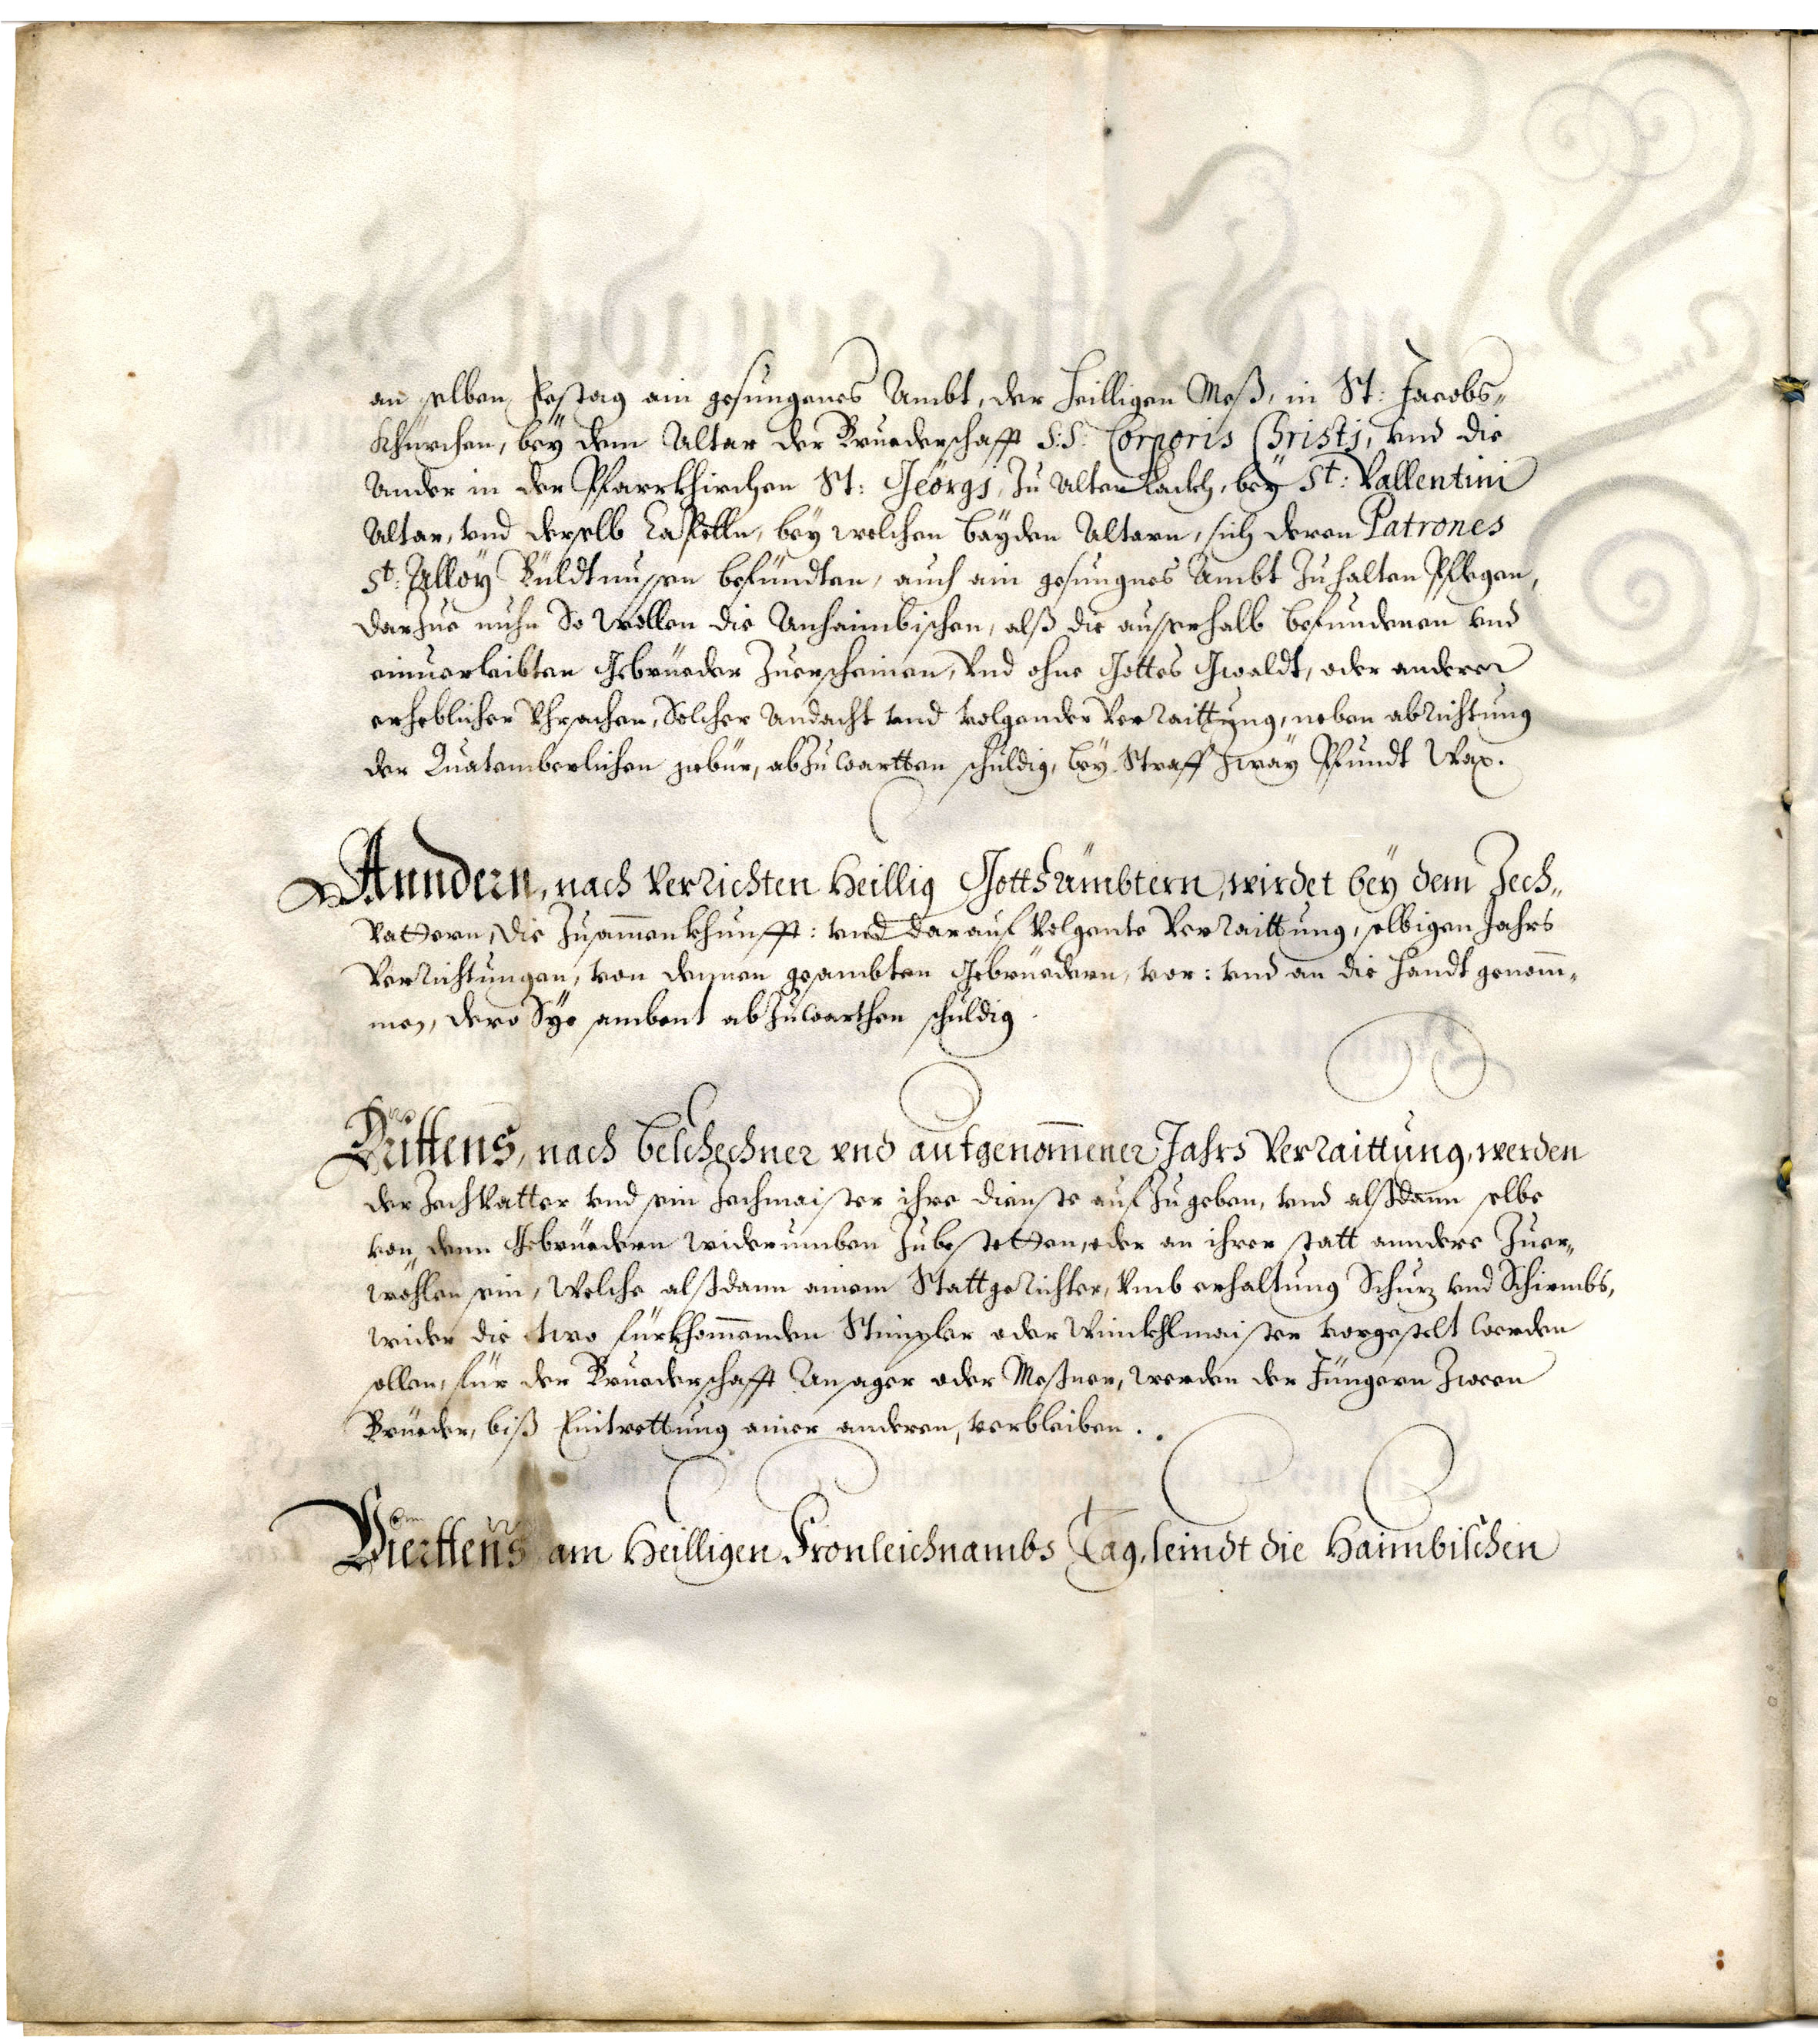 an selben Festag ain gesungenes Ambt, der Heilligen Meß, in St: Jacobs„
Khürchen, beÿ dem Altar der Bruederschafft S:S: Corporis Christj, vnd die
Ander in der Pfarrkhirchen St: Geörgj, zu Altenlackh, beÿ St: Vallentini
Altar, vnd derselb Capelln, beÿ welchen baÿden Altarn, sich deren Patrones
St: Alloÿ Büldtnussen befündten, auch ain gesungnes Ambt zuhalten Pflegen,
darzue nuhn So wollen die Anhaimbischen, alß die ausserhalb befundenen vnd
einuerleibten Gebrüeder zuerscheinen, Vnd ohne Gottes Gwaldt, oder anderer
erheblicher Vhrsachen, Solcher Andacht vnd volgender Verraittung, neben abrichtung
der Quatemberlichen gebür, abzuwartten schuldig, beÿ Straff zwaÿ Pfundt Wax.
Anndern, nach Verrichten Heillig Gottsambtern, wirdet beÿ dem Zech„
Vattern, die Zusammenkhunfft: vnd darauf Volgente Verraittung, selbigen Jahrs
Verrichtungen, von dennen gesambten Gebrüedern, vor: vnd an die Handt genom̄„
men, dero Sÿe sambent abzuwarthen schuldig.
Drittens, nach beschechner vnd aufgenom̄ener Jahrs Verraittung, werden
der Zechvatter vnd sein Zechmaister ihre dienste aufzugeben, vnd alßdann selbe
von denn Gebrüedern widerumben zubestetten, oder an ihrer statt anndere zuer„
wöhlen sein, Welche alßdann ainem Stattgerichter, Vmb erhaltung Schuz vnd Schirmbs,
wider die etwo fürkhom̄enden Stimpler oder Winckhlmaister vorgestelt werden
sollen, für der Bruederschafft Ansager oder Meßner, werden der Jüngern Zween
Brüeder, biß Eintrettung ainer anderen, verbleiben.
Vierttens am Heilligen Fronleichnambs Tag, seindt die Haimbischen